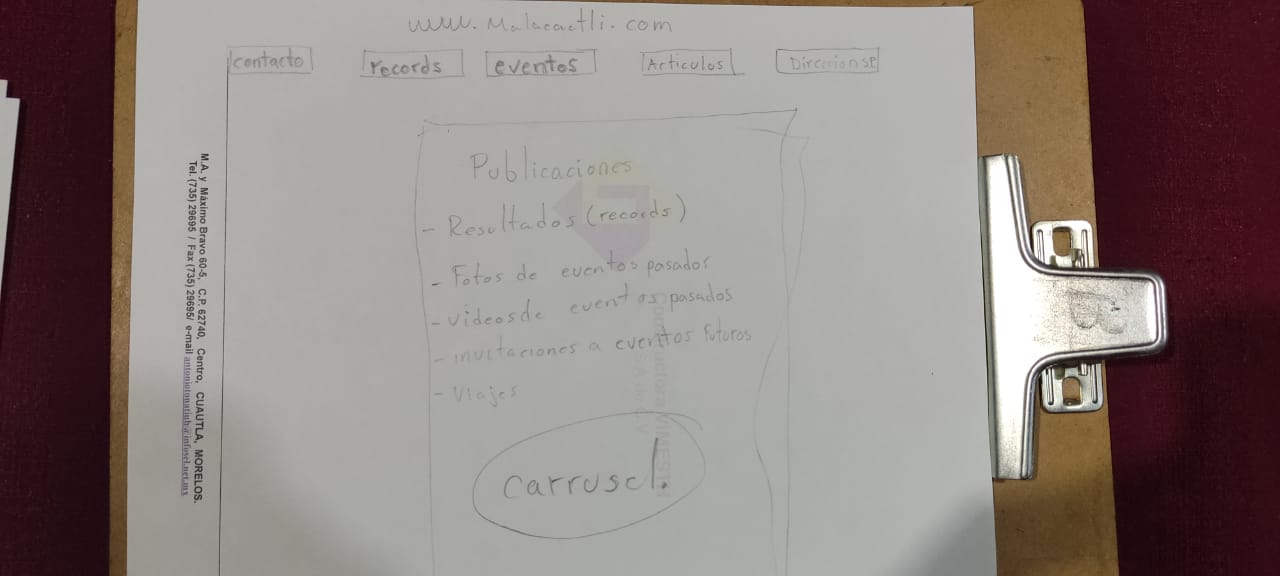 www.Malacactli.com
contacto
records
eventos
Articulos
Publicaciones
- Resultados (records)
- Fotos de eventos pasados
- videos de eventos pasados
- invitaciones a eventos futuros
- Viajes
carrusel.
M.A. y Máximo Bravo 60-5, C.P. 62740, Centro, CUAUTLA, MORELOS.
Tel. (735) 29695 / Fax (735) 29695/ e-mail